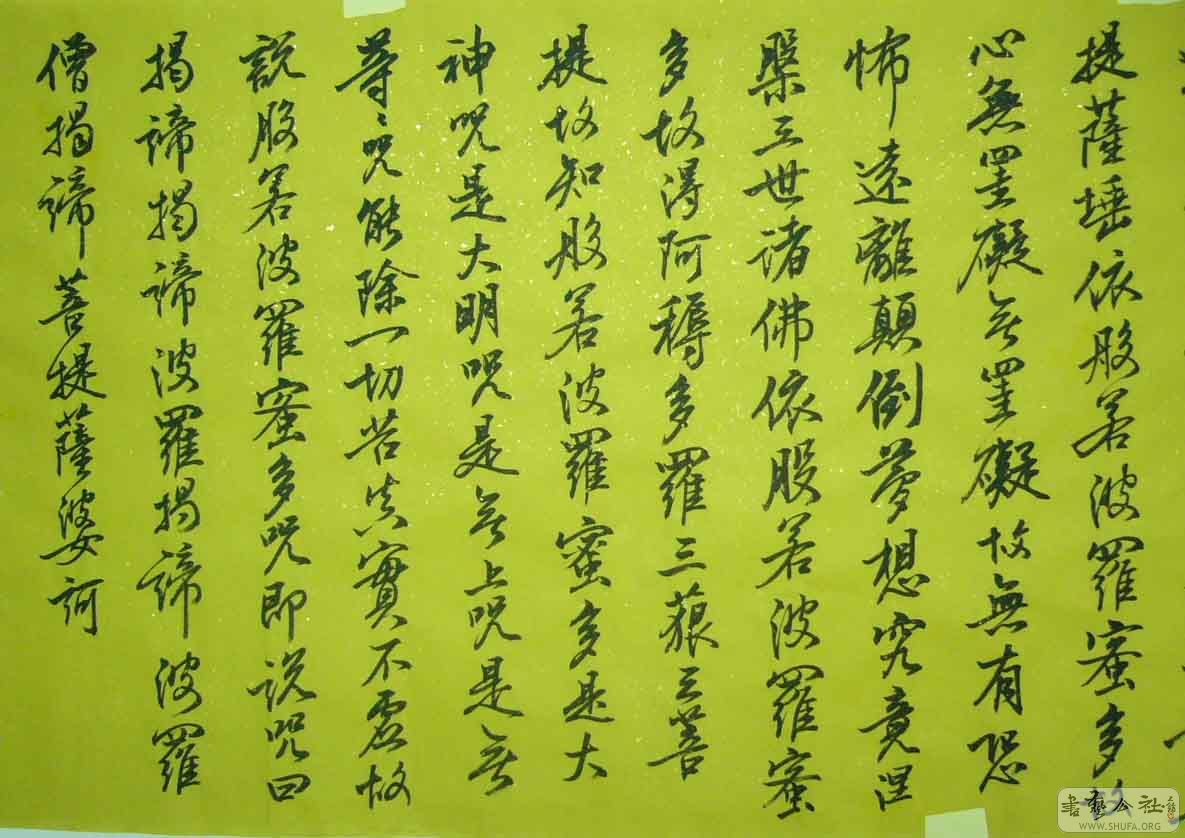 提薩埵依般若波羅蜜多
心無罣礙无罣礙故無有恐
怖遠離顛倒夢想究竟涅
槃三世诸佛依般若波羅蜜
多故得阿耨多羅三藐三菩
提故知般若波羅蜜多是大
神咒是大明咒是无上咒是无
等〻咒能除一切苦真實不虛故
說般若波羅蜜多咒即说咒曰
揭諦揭諦波羅揭諦波羅
僧揭諦菩提薩婆訶
書藝公社
WWW.SHUFA.ORG